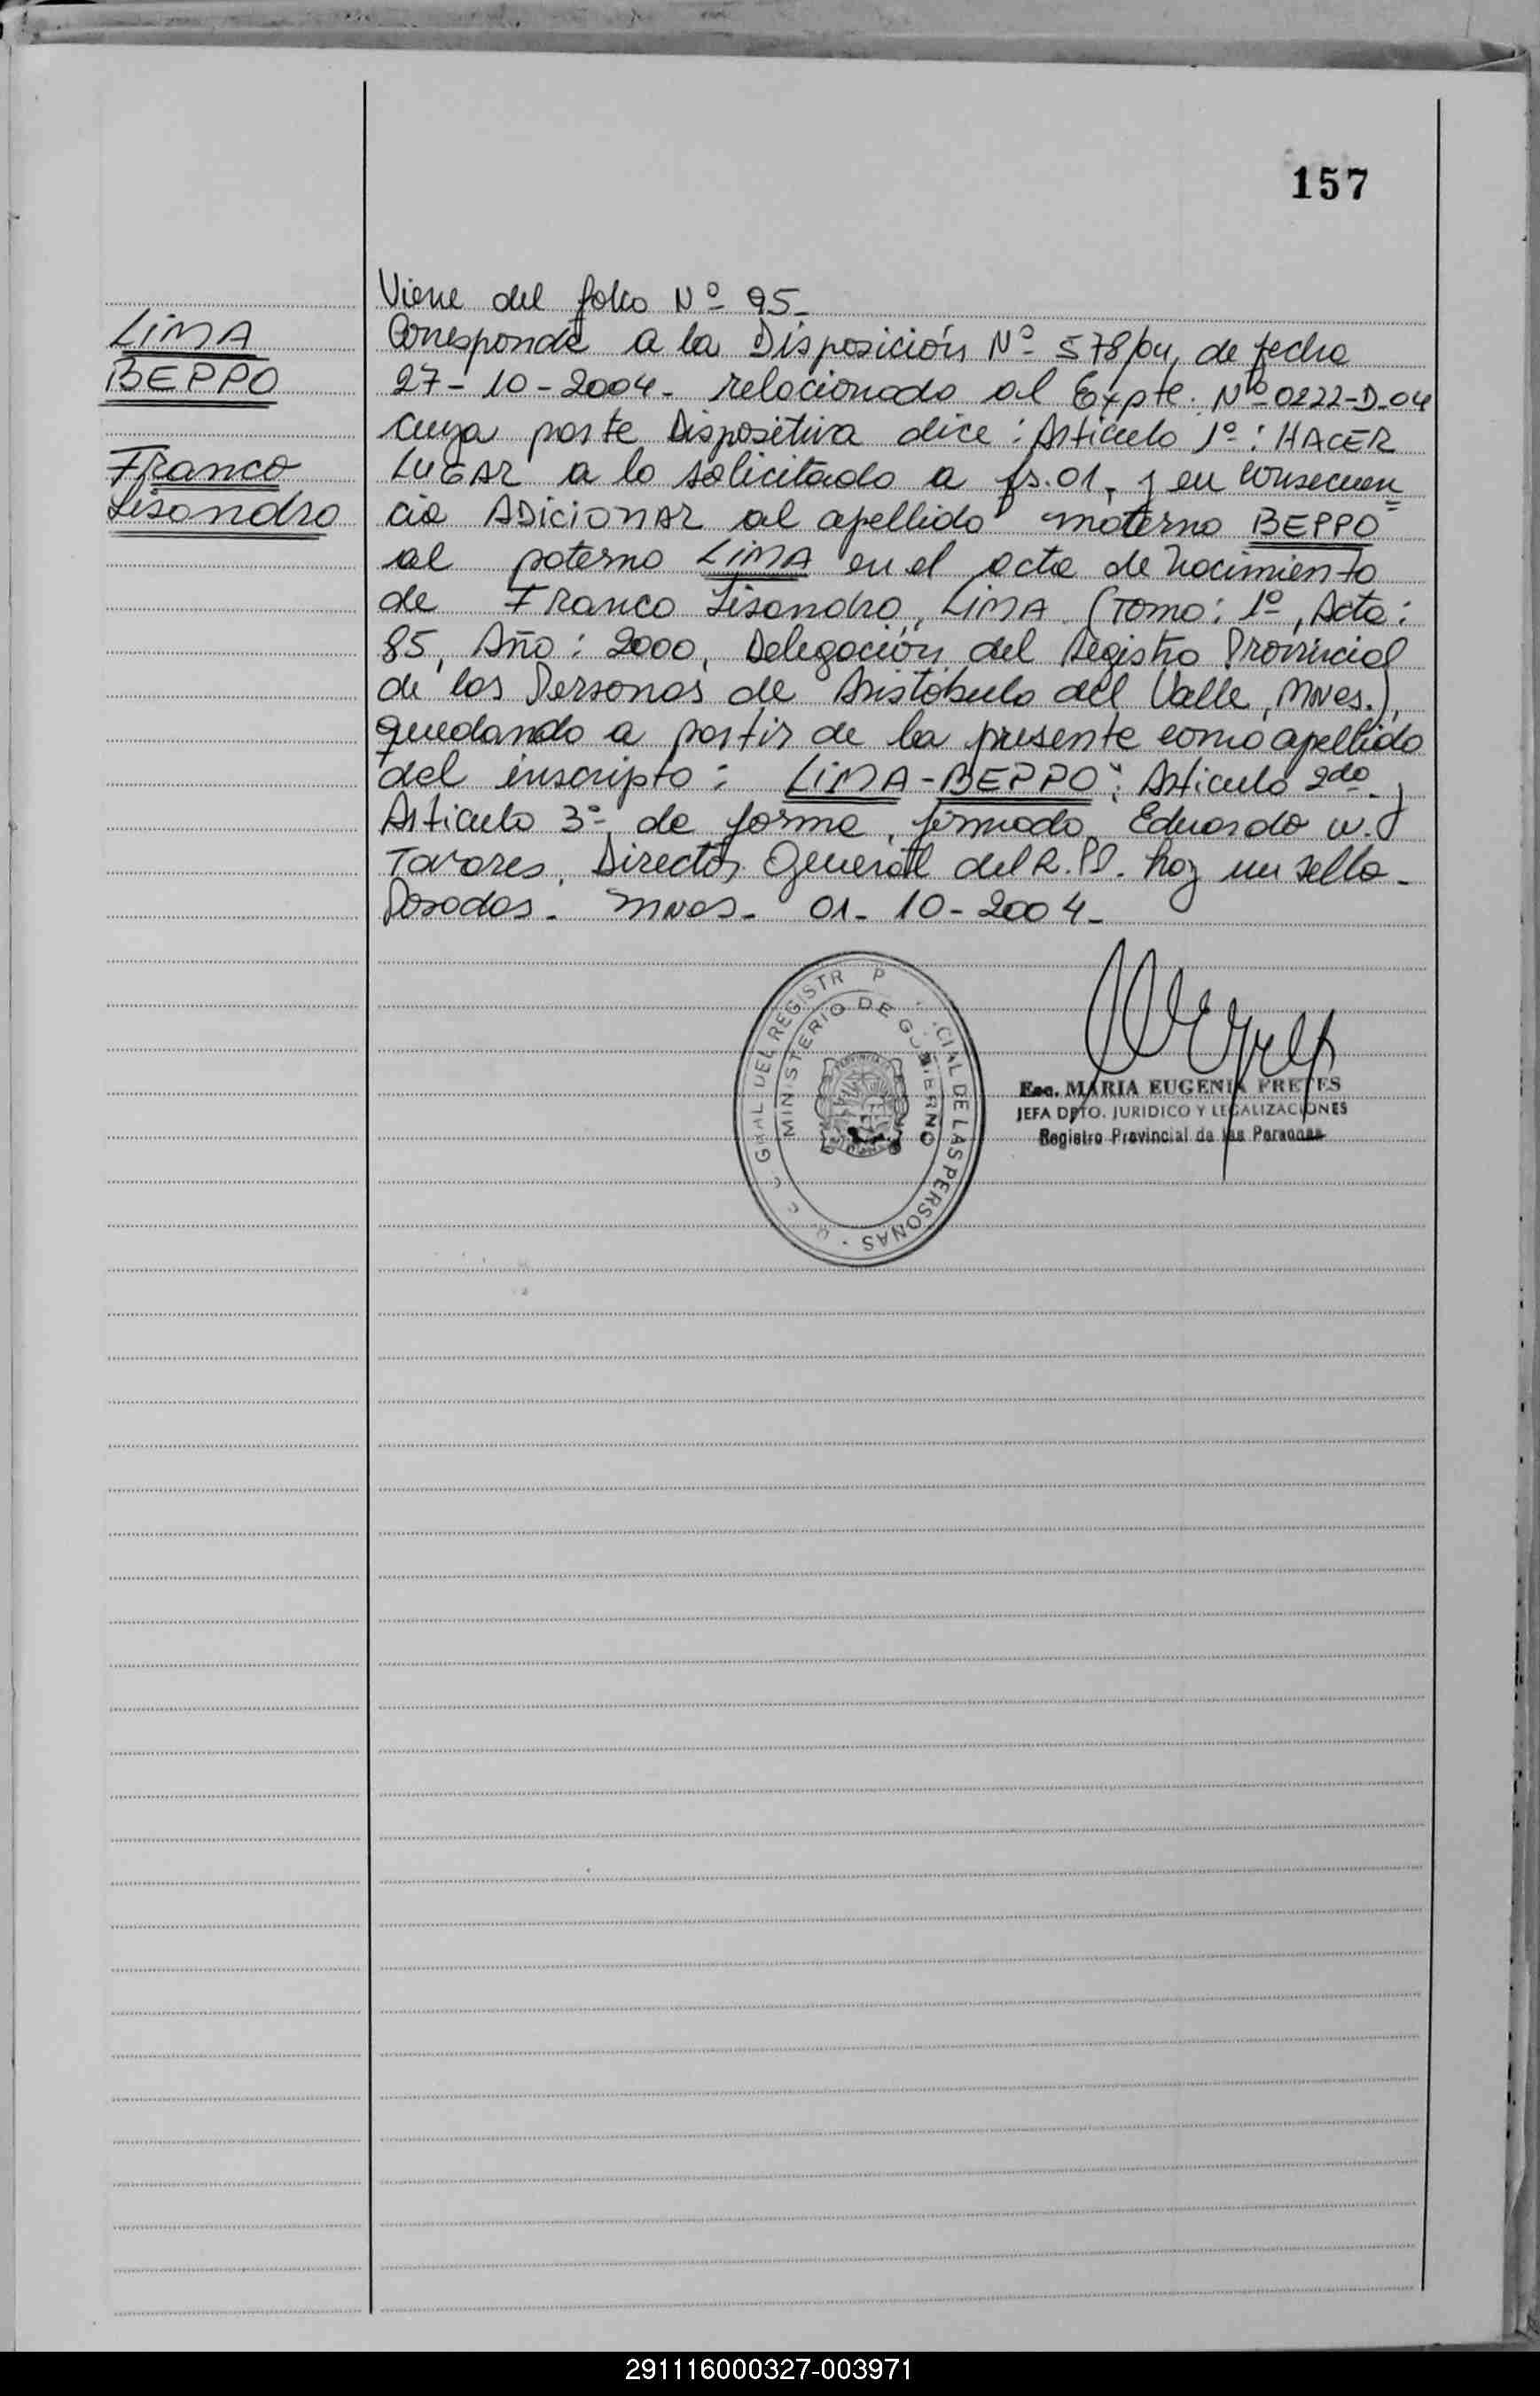 157
LIMA
BEPPO
Franco
Lisandro
Viene del folio Nº 95-
Corresponde a la Disposición Nº 578/04, de fecha
27-10-2004- relacionado al Expte. Nº 0222-D-04
cuya parte Dispositiva dice: Artículo 1º: HACER
LUGAR a lo solicitado a fs.01, y en consecuen
cia ADICIONAR al apellido materno BEPPO
al paterno LIMA en el acta de nacimiento
de Franco Lisandro, LIMA (Tomo: 1º, Acta:
85, Año: 2000, Delegación del Registro Provincial
de las Personas de Aristóbulo del Valle, Mnes.),
quedando a partir de la presente como apellido
del inscripto: LIMA-BEPPO": Artículo 2do. y
Artículo 3º, de forma, firmado, Eduardo W.
Tavares, Director General del R.PP. hay un sello-
Posadas- Mnes- 01-10-2004-
GRAL DEL REGISTR P CIAL DE LAS PERSONAS
MINISTERIO DE GOBIERNO
Esc. MARIA EUGENIA FRETES
JEFA DPTO. JURIDICO Y LEGALIZACIONES
Registro Provincial de las Personas
291116000327-003971